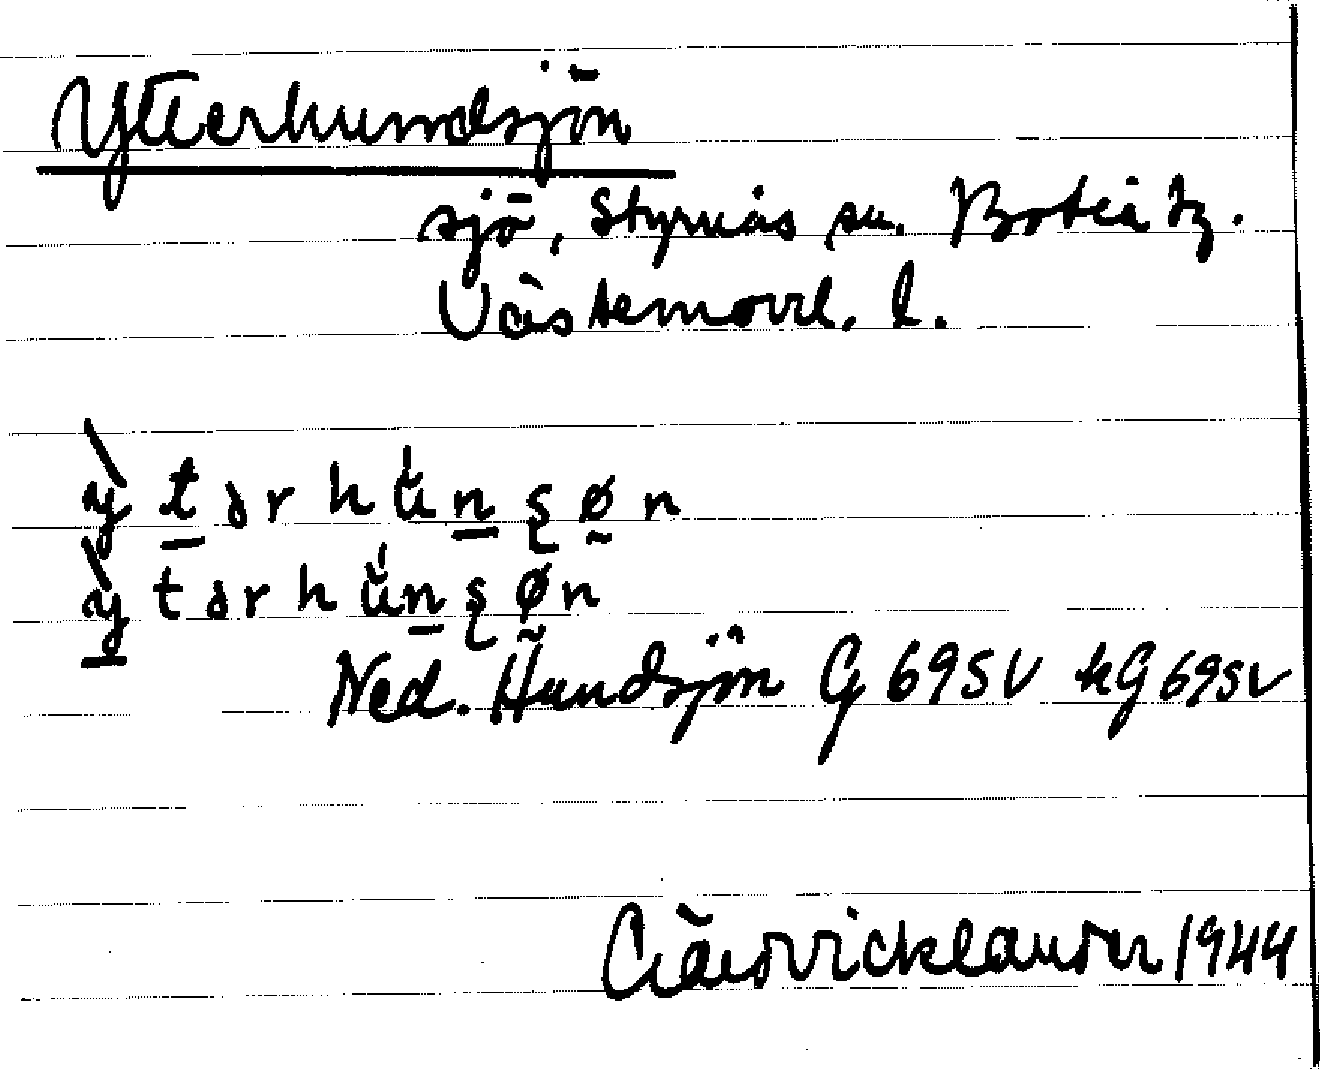 Ytterhundsjön
sjö, Styrnäs sn. Boteå tg.
Västernorrl. l.
ỳ̖ t̲ ə r h ŭ́ n̲ ʂ ø̰ n
ỳ̲ t ə r h ŭ́ n̲ ʂ ø̰ n
Ned. Hundsjön G 69 SV kG 69 SV
1944